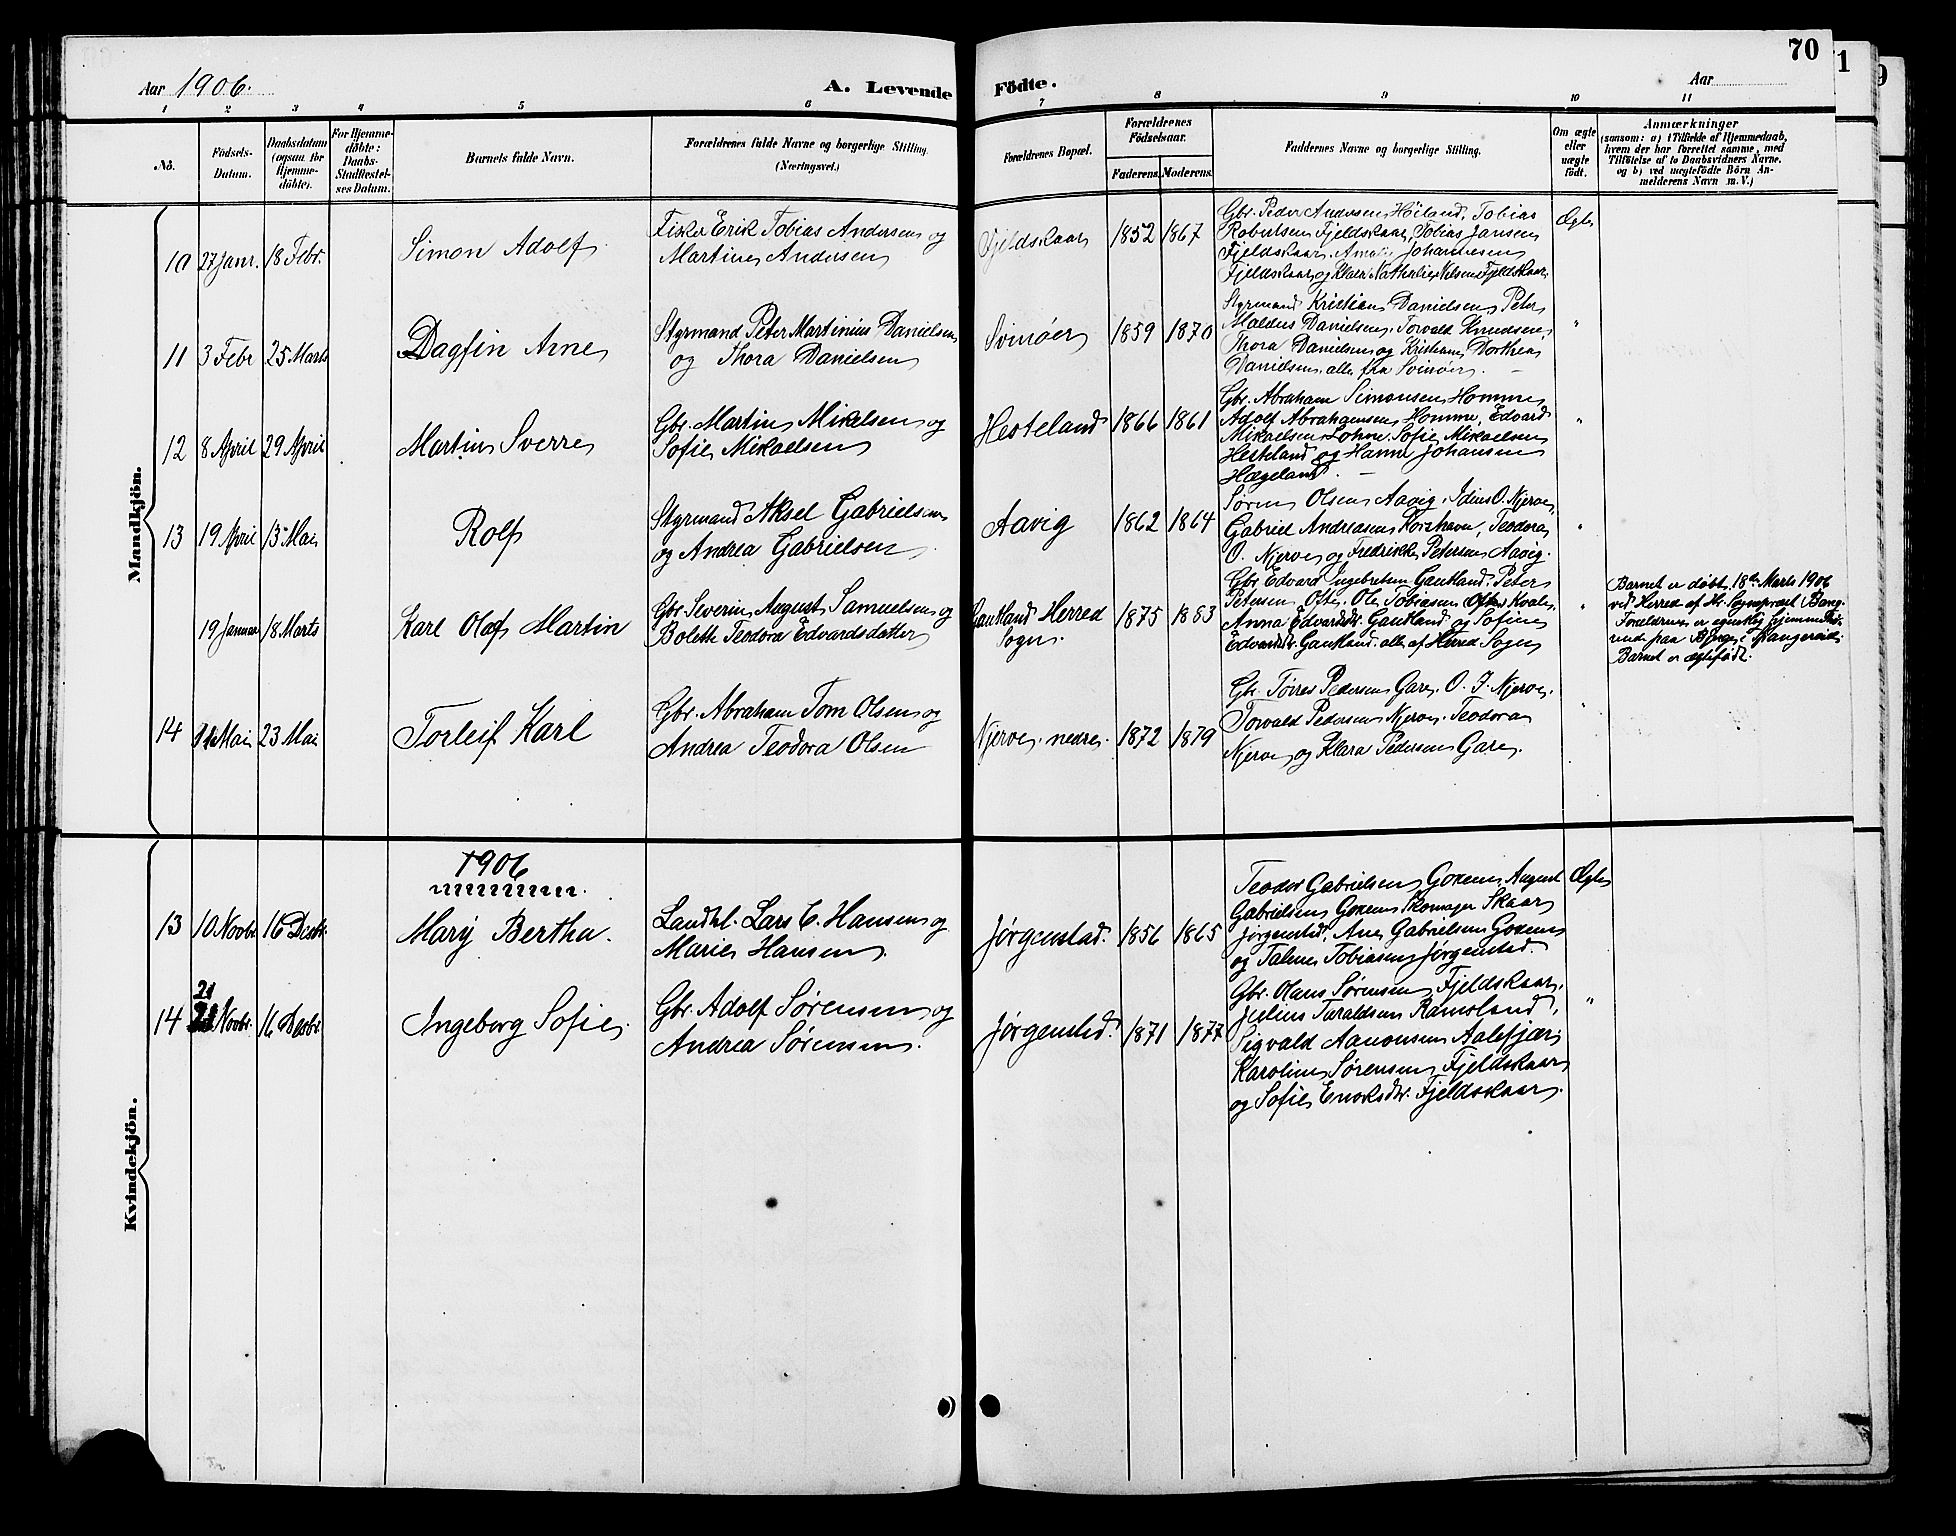 70
1
9
Aar 1906.
A. Levende
Födte.
Aar
1 2 3 4 5 6 7 8 9 10 11
No.
Födsels-
Datum.
Daabsdatum
(ogsaa for
Hjemme-
döbte).
For Hjemme-
döbte:
Daabs-
Stadfæstel-
ses Datum.
Barnets fulde Navn.
Forældrenes fulde Navne og borgerlige Stilling.
(Næringsvei.)
Forældrenes Bopæl.
Forældrenes
Födselsaar.
Faderens.
Moderens.
Faddernes Navne og borgerlige Stilling.
Om ægte
eller
uægte
födt.
Anmærkninger
(saasom: a) i Tilfælde af Hjemmedaab,
hvem der har forrettet samme, med
Tilföielse af to Daabsvidners Navne.
og b) ved uægtefödte Börn An-
melderens Navn m. V.)
Mandkjön.
10
27 Janr.
18 Febr.
Simon Adolf
Fisker Erik Tobias Andersen og
Martine Andersen
Fjeldskaar
1852
1867
Gbr. Peder Andersen Höiland, Tobias
Robertsen Fjeldskaar, Tobias Jansen
Fjeldskaar, Amalie Johannesen
Fjeldskaar og Klara Nathalie Nilsen Fjeldskaar
Ægte
11
3 Febr
25 Marts
Dagfin Arne
Styrmand Peter Martinius Danielsen
og Thora Danielsen
Svinöer
1859
1870
Styrmand Kristian Danielsen, Peter
Maldus Danielsen, Torvald Knudsen,
Thora Danielsen og Kristiane Dorthea
Danielsen, alle fra Svinöer.
"
12
8 April
29 April
Martin Sverre
Gbr. Martin Mikalsen og
Sofie Mikaelsen
Hesteland
1866
1861
Gbr. Abraham Simonsen Homme,
Adolf Abrahamsen Homme, Edvard
Mikaelsen Lohne, Sofie Mikaelsen
Hesteland og Hanne Johansen
Hægeland.
"
13
19 April
13 Mai
Rolf
Styrmand Aksel Gabrielsen
og Andrea Gabrielsen
Aavig
1862
1864
Sören Olsen Aavig, Idius O. Njerve,
Gabriel Andreasen Korshavn, Teodora
O. Njerve og Fredrikke Petersen Aavig.
"
19 Januar
18 Marts
Karl Olaf Martin
Gbr. Severin August Samuelsen og
Bolette Teodora Edvardsdatter
Gautland Herred
Sogn.
1875
1883
Gbr. Edvard Ingebretsen Gautland, Peter
Petersen Ofte, Ole Tobiasen Ofte Kvale,
Anna Edvardsdr. Gautland og Sofine
Edvardsdr. Gautland. alle af Herred Sogn
"
Barnet er döbt 18de Marts 1906
ved Herred af Hr. Sognepræst Bang.
Forældrene er egentlig hjemmehö-
rende paa Bjerge i Spangereid.
Barnet er ægtefödt.
14
Mai
23 Mai
Torleif Karl
Gbr. Abraham Tom Olsen og
Andrea Teodora Olsen
Njerve nedre.
1872
1879
Gbr. Törres Pedersen Gare, O. J. Njerve.
Torvald Pedersen Njerve, Teodora
Njerve og Klara Pedersen Gare.
"
Kvindekjön.
1906
13
10 Novbr
16 Desbr.
Mary Bertha.
Landhl. Lars C. Hansen og
Marie Hansen.
Jörgenstad.
1856
1865
Teodor Gabrielsen Goxem, August
Gabrielsen Goxem, Skomager Skaar
Jörgensted, Ane Gabrielsen Goxem
og Talene Tobiasen Jörgensted.
Ægte
14
21
Novbr.
16 Desbr
Ingeborg Sofie.
Gbr. Adolf Sörensen og
Andrea Sörensen.
Jörgensted.
1871
1877
Gbr. Olaus Sörensen Fjeldskaar,
Julius Taraldsen Ramsland,
Sigvald Aanonsen Aalefjær,
Karoline Sörensen Fjeldskaar
og Sofie Enoksdr. Fjeldskaar.
"